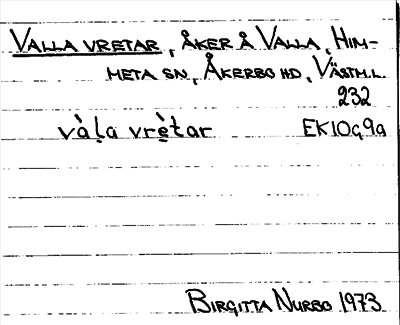 VALLA VRETAR, ÅKER Å VALLA, HIM-
META SN, ÅKERBO HD, VÄSTM.L.
232
vàḷa vrètar EK10G9a
BIRGITTA NURBO 1973